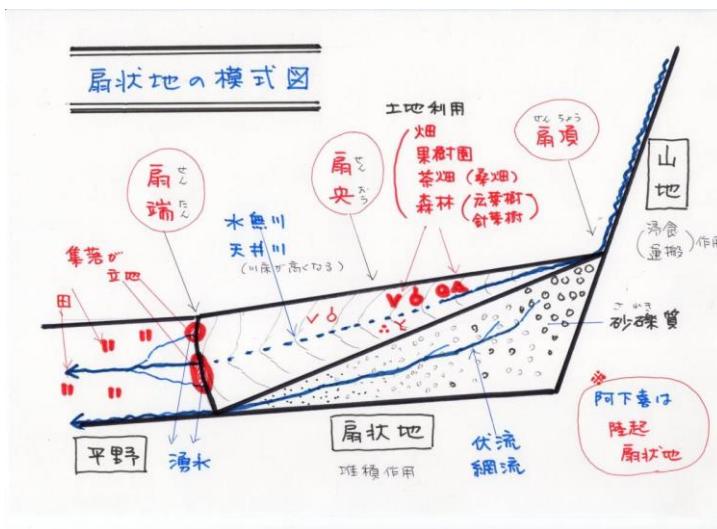 扇状地の模式図
土地利用
畑
果樹園
茶畑（桑畑）
森林（広葉樹
針葉樹）
せんちょう
扇頂
山地
浸食
運搬
作用
せん
扇
たん
端
せん
扇
おう
央
水無川
天井川
（川床が高くなる）
集落が
立地
田
さ れき
砂礫質
※
阿下喜は
陸起
扇状地
平野
湧水
扇状地
堆積作用
伏流
網流